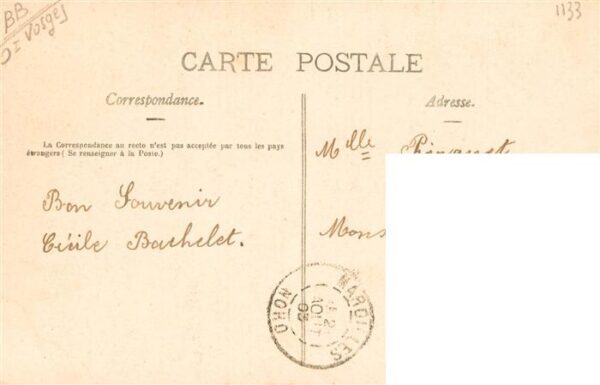 BB
Vosges
1133
CARTE POSTALE
Correspondance.
Adresse.
La Correspondance au recto n'est pas acceptée par tous les pays
étrangers (Se renseigner à la Poste.)
Mlle
Bon Souvenir
Cécile Bachelet.
Mons
MAROILLES
NORD
AOUT